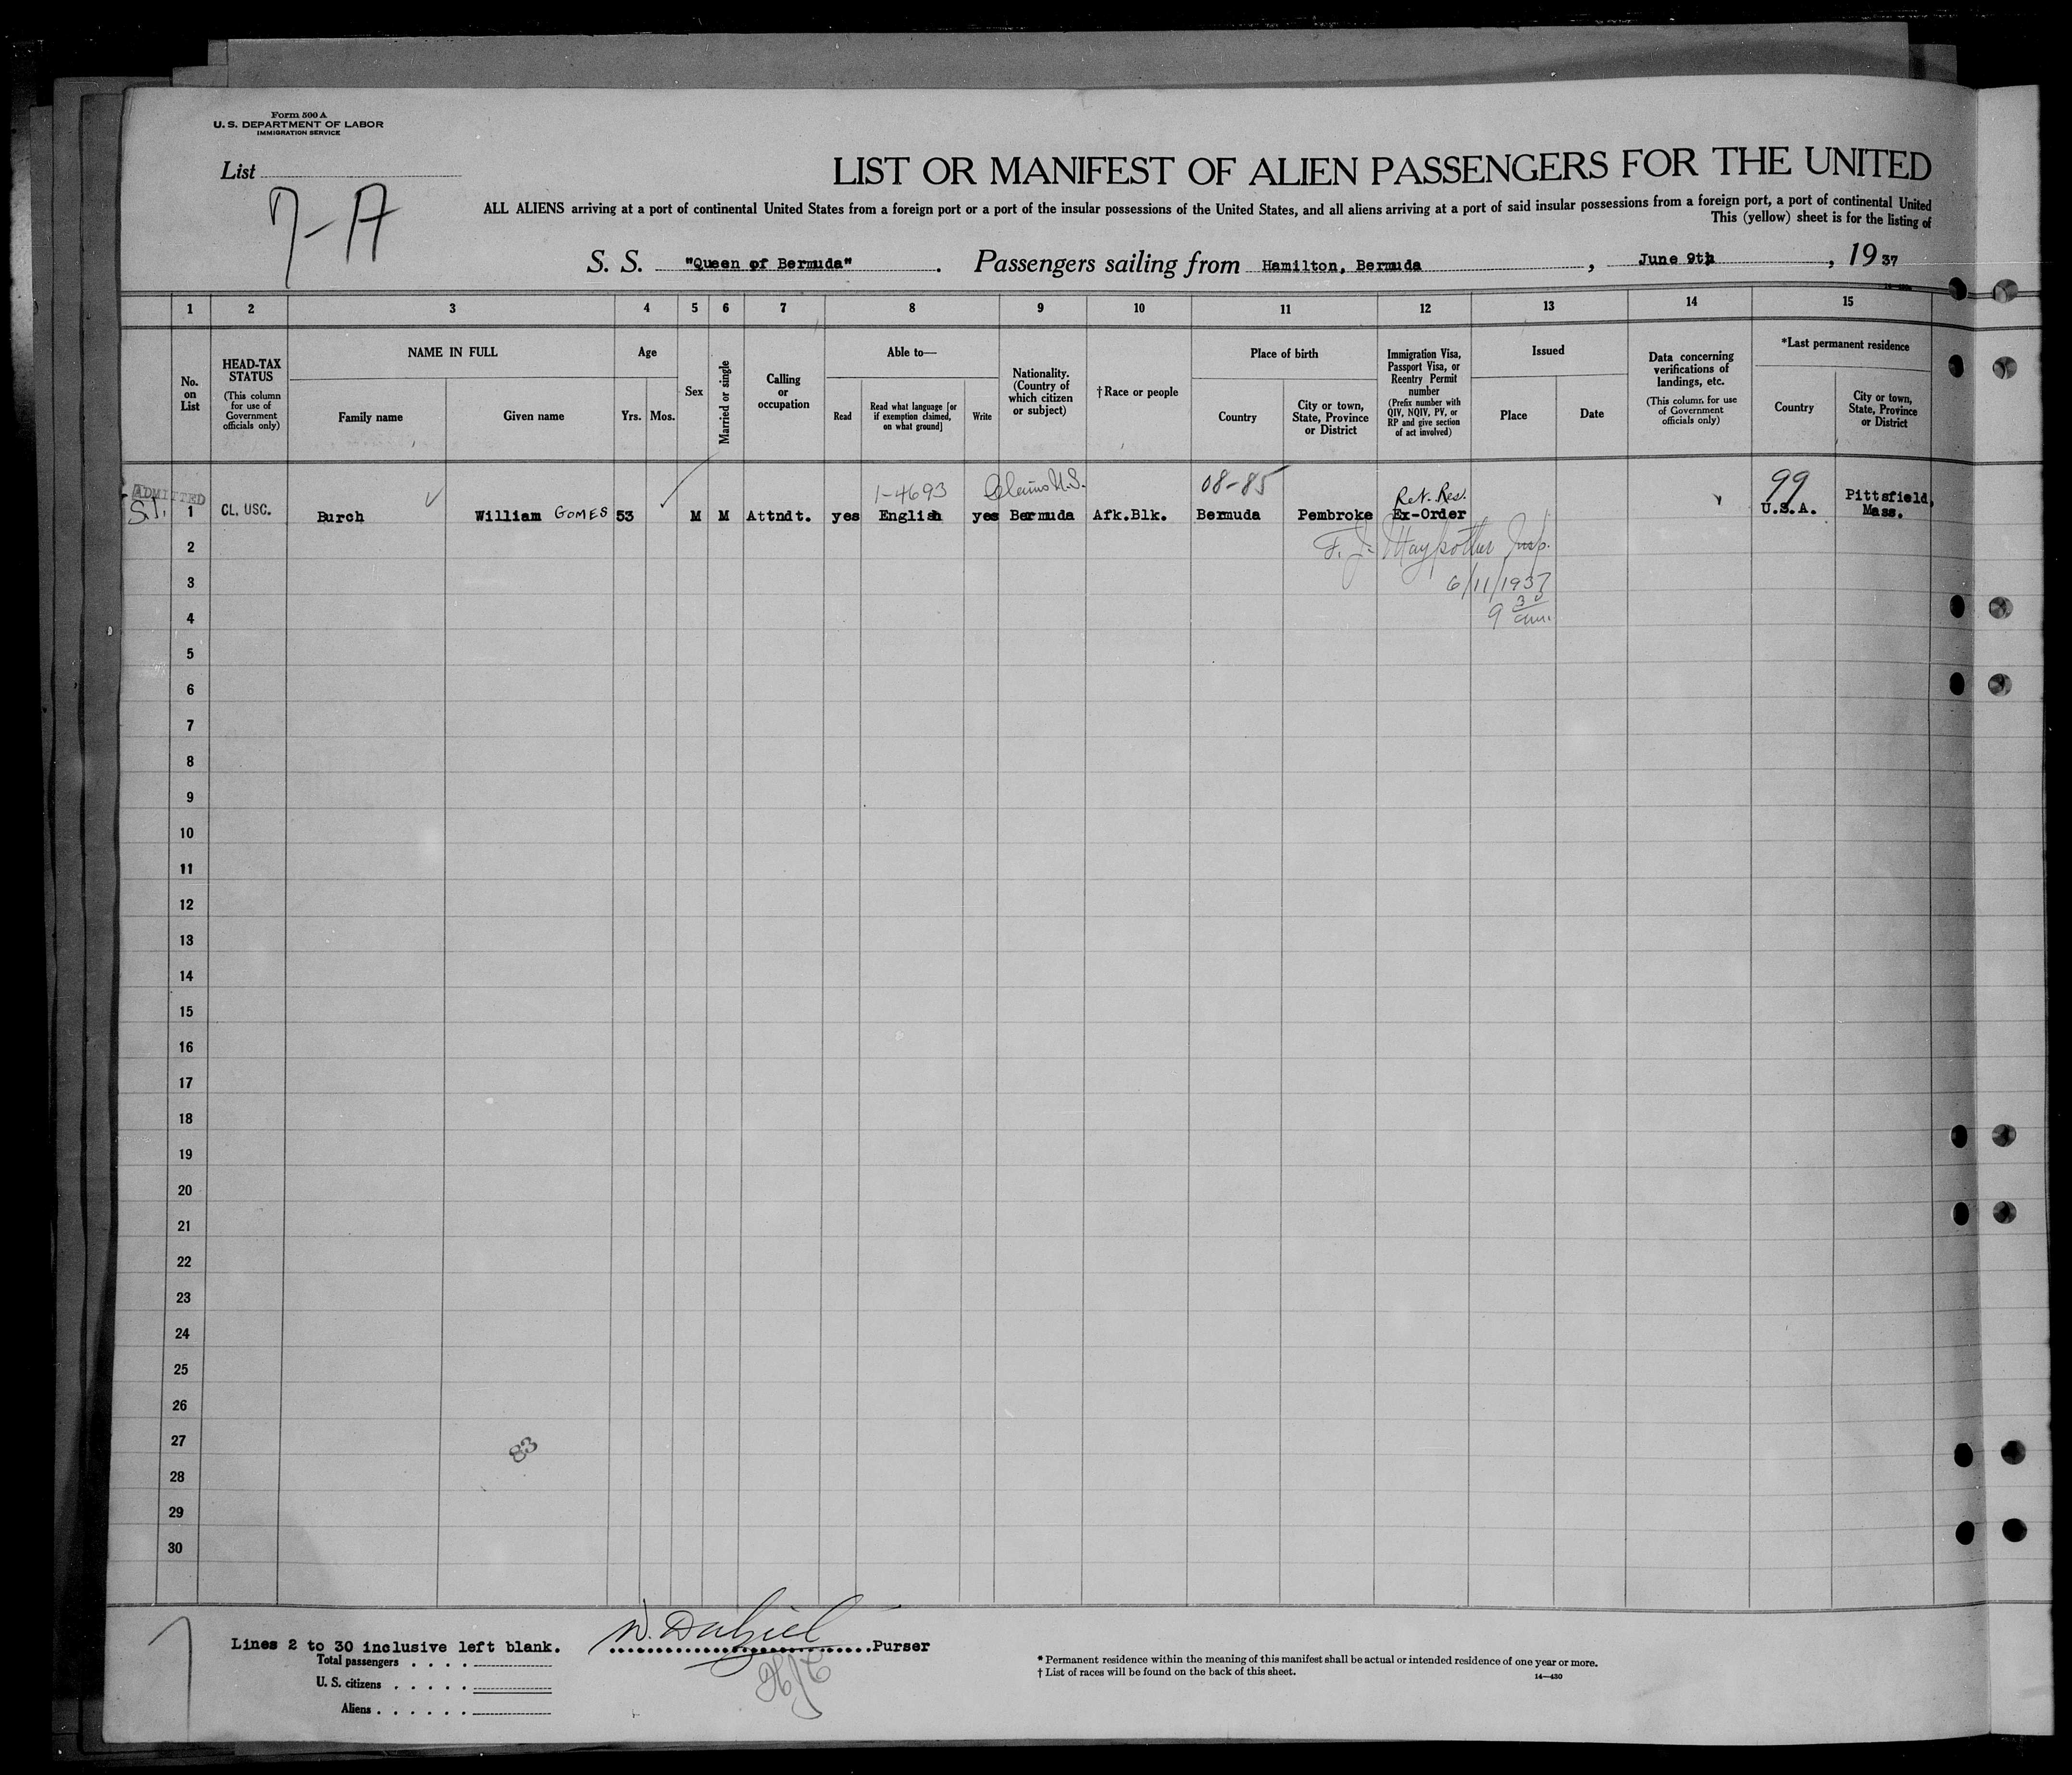 Form 500 A
U. S. DEPARTMENT OF LABOR
IMMIGRATION SERVICE
List
7-A
LIST OR MANIFEST OF ALIEN PASSENGERS FOR THE UNITED
ALL ALIENS arriving at a port of continental United States from a foreign port or a port of the insular possessions of the United States, and all aliens arriving at a port of said insular possessions from a foreign port, a port of continental United
This (yellow) sheet is for the listing of
S. S. "Queen of Bermuda". Passengers sailing from Hamilton, Bermuda, June 9th, 1937
1 2 3 4 5 6 7 8 9 10 11 12 13 14 15
No. on List
HEAD-TAX STATUS
(This column for use of Government officials only)
NAME IN FULL
Family name
Given name
Age
Yrs. Mos.
Sex
Married or single
Calling or occupation
Able to—
Read
Read what language [or if exemption claimed, on what ground]
Write
Nationality. (Country of which citizen or subject)
†Race or people
Place of birth
Country
City or town, State, Province or District
Immigration Visa, Passport Visa, or Reentry Permit number
(Prefix number with QIV, NQIV, PV, or RP and give section of act involved)
Issued
Place
Date
Data concerning verifications of landings, etc.
(This column for use of Government officials only)
*Last permanent residence
Country
City or town, State, Province or District
ADMITTED
S.I.
1-4693 Claims U.S. 08-85 Ret. Res. 99
1 CL. USC. Burch William GOMES 53 M M Attndt. yes English yes Bermuda Afk.Blk. Bermuda Pembroke Ex-Order U.S.A. Pittsfield, Mass.
2
F. J. Maypother Insp.
3
6/11/1937
4
9 30 am.
5
6
7
8
9
10
11
12
13
14
15
16
17
18
19
20
21
22
23
24
25
26
27
83
28
29
30
Lines 2 to 30 inclusive left blank.
W. Dalziel
Purser
Total passengers
U. S. citizens
Aliens
* Permanent residence within the meaning of this manifest shall be actual or intended residence of one year or more.
† List of races will be found on the back of this sheet.
14—430